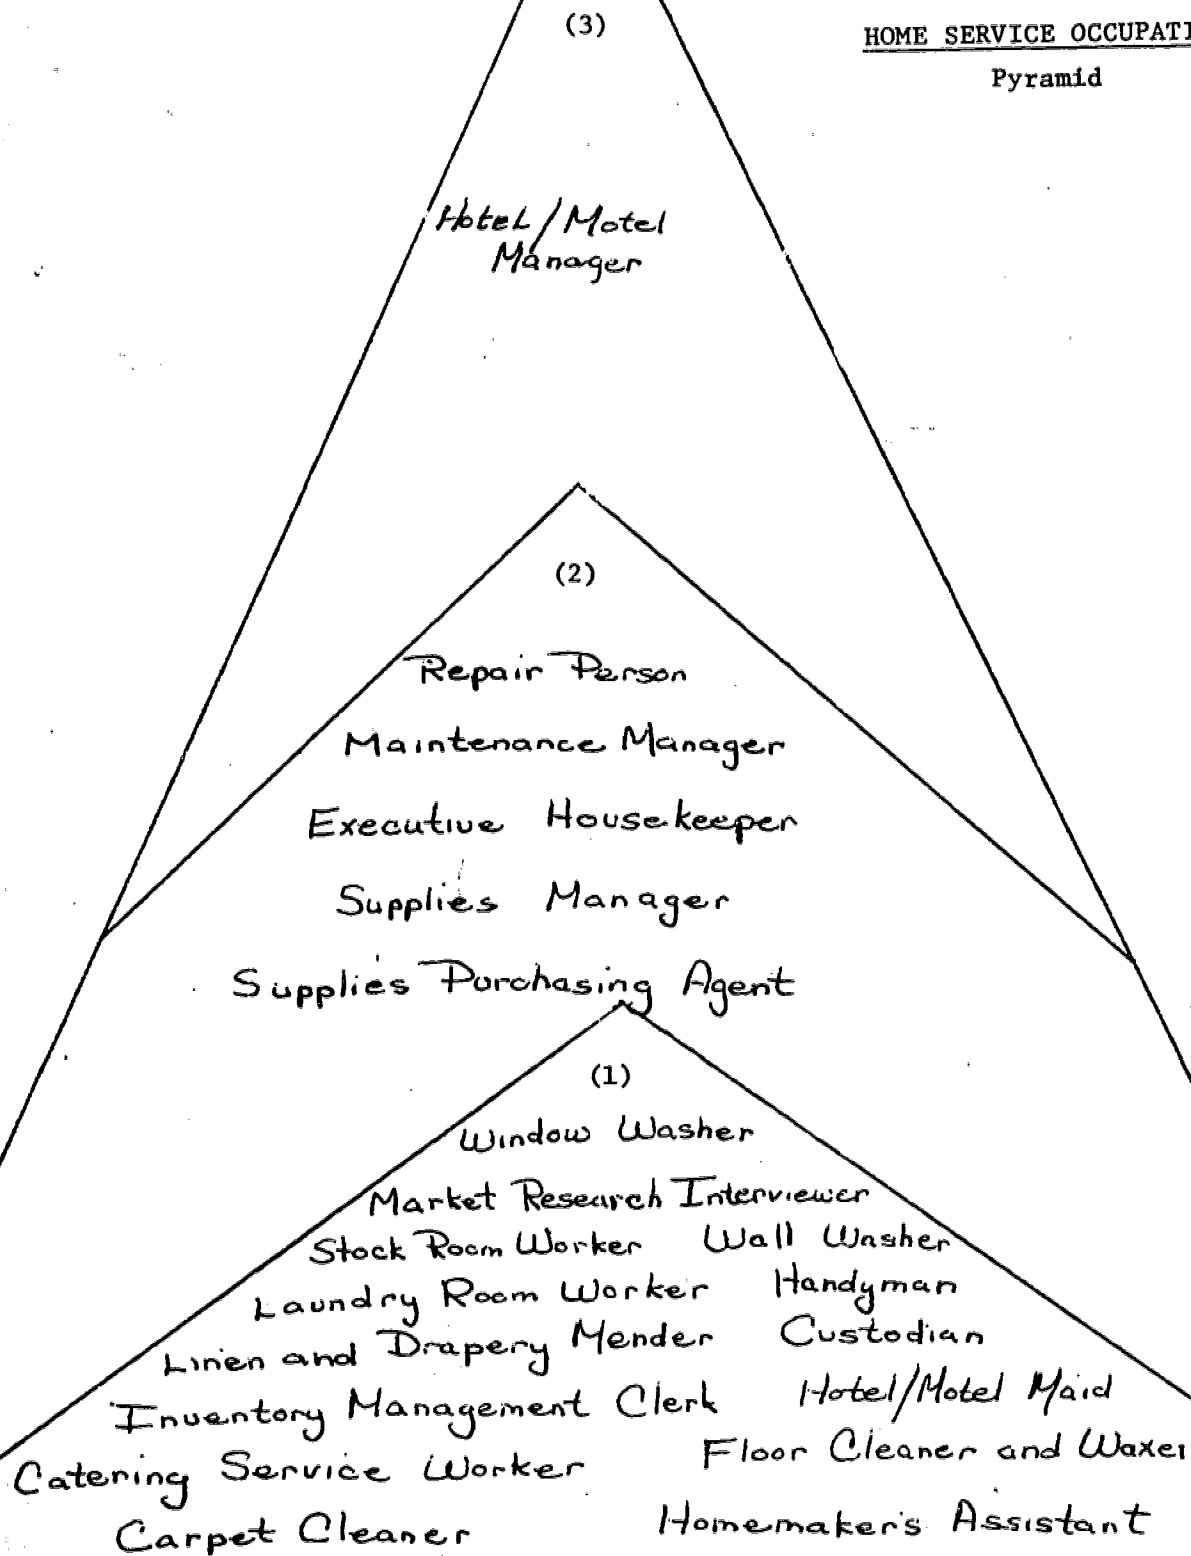 (3)
HOME SERVICE OCCUPATI
Pyramid
Hotel/Motel
Manager
(2)
Repair Person
Maintenance Manager
Executive Housekeeper
Supplies Manager
Supplies Purchasing Agent
(1)
Window Washer
Market Research Interviewer
Stock Room Worker Wall Washer
Laundry Room Worker Handyman
Linen and Drapery Mender Custodian
Inventory Management Clerk Hotel/Motel Maid
Catering Service Worker Floor Cleaner and Waxer
Carpet Cleaner Homemaker's Assistant